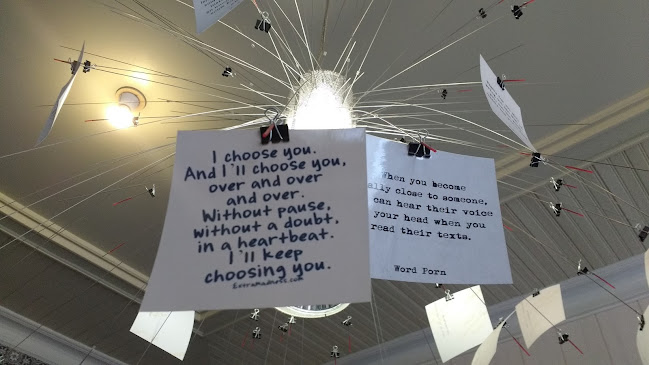 I choose you.
And I'll choose you,
over and over
and over.
Without pause,
without a doubt,
in a heartbeat.
I'll keep
choosing you.
When you become
ally close to someone,
can hear their voice
your head when you
read their texts.
Word Porn